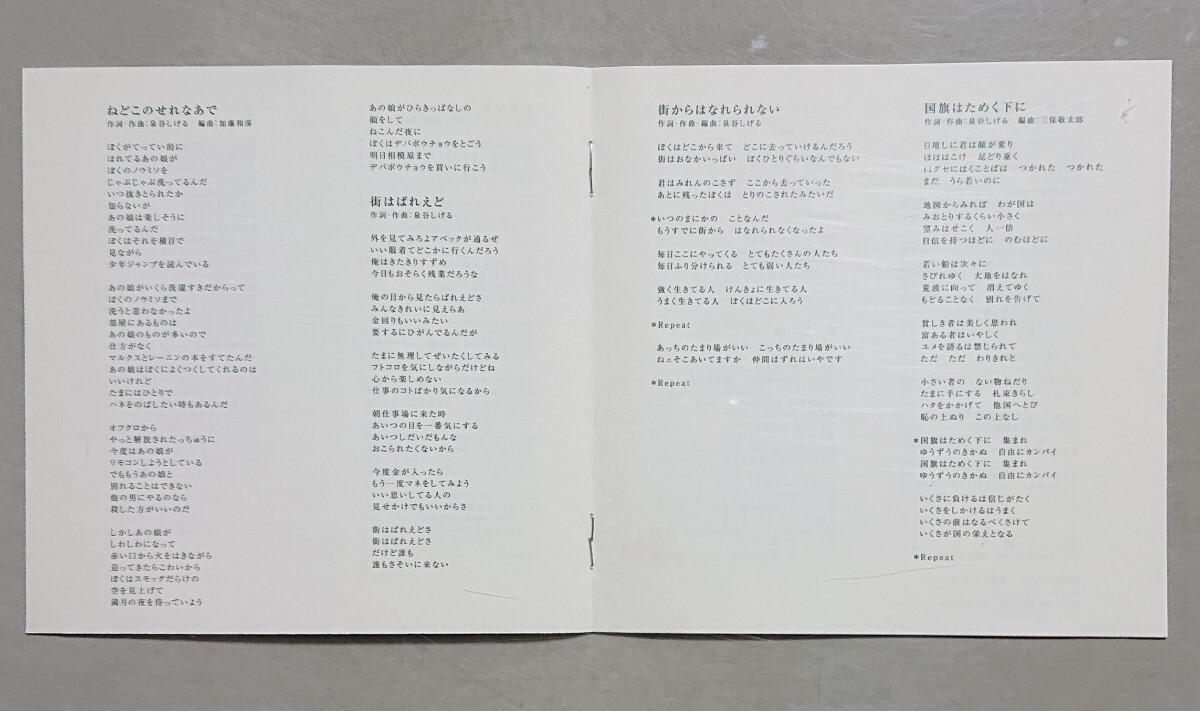 ねどこのせれなあで
作詞・作曲：泉谷しげる　編曲：加藤和彦
ぼくがてってい的に
はれてるあの娘が
ぼくのノウミソを
じゃぶじゃぶ洗ってるんだ
いつ抜きとられたか
知らないが
あの娘は楽しそうに
洗ってるんだ
ぼくはそれを横目で
見ながら
少年ジャンプを読んでいる
あの娘がいくら洗濯すきだからって
ぼくのノウミソまで
洗うと思わなかったよ
部屋にあるものは
あの娘のものが多いので
仕方がなく
マルクスとレーニンの本をすてたんだ
あの娘はぼくによくつくしてくれるのは
いいけれど
たまにはひとりで
ハネをのばしたい時もあるんだ
オフクロから
やっと解放されたっちゅうに
今度はあの娘が
リモコンしようとしている
でももうあの娘と
別れることはできない
他の男にやるのなら
殺した方がいいのだ
しかしあの娘が
しわしわになって
赤い口から火をはきながら
迫ってきたらこわいから
ぼくはスモッグだらけの
空を見上げて
満月の夜を待っていよう
あの娘がひらきっぱなしの
顔をして
ねこんだ夜に
ぼくはデバボウチョウをとごう
明日相模原まで
デバボウチョウを買いに行こう
街はぱれえど
作詞・作曲：泉谷しげる
外を見てみろよアベックが通るぜ
いい服着てどこかに行くんだろう
俺はきたきりすずめ
今日もおそらく残業だろうな
俺の目から見たらぱれえどさ
みんなきれいに見えらあ
金回りもいいみたい
要するにひがんでるんだが
たまに無理してぜいたくしてみる
フトコロを気にしながらだけどね
心から楽しめない
仕事のコトばかり気になるから
朝仕事場に来た時
あいつの目を一番気にする
あいつしだいだもんな
おこられたくないから
今度金が入ったら
もう一度マネをしてみよう
いい思いしてる人の
見せかけでもいいからさ
街はぱれえどさ
街はぱれえどさ
だけど誰も
誰もさそいに来ない
街からはなれられない
作詞・作曲・編曲：泉谷しげる
ぼくはどこから来て　どこに去っていけるんだろう
街はおなかいっぱい　ぼくひとりぐらいなんでもない
君はみれんのこさず　ここから去っていった
あとに残ったぼくは　とりのこされたみたいだ
＊いつのまにかの　ことなんだ
もうすでに街から　はなれられなくなったよ
毎日ここにやってくる　とてもたくさんの人たち
毎日ふり分けられる　とても弱い人たち
強く生きてる人　けんきょに生きてる人
うまく生きてる人　ぼくはどこに入ろう
＊Repeat
あっちのたまり場がいい　こっちのたまり場がいい
ねェそこあいてますか　仲間はずれはいやです
＊Repeat
国旗はためく下に
作詞・作曲：泉谷しげる　編曲：三保敬太郎
日増しに君は顔が変り
ほほはこけ　足どり重く
口グセにはくことばは　つかれた　つかれた
まだ　うら若いのに
地図からみれば　わが国は
みおとりするくらい小さく
望みはせこく　人一倍
自信を持つほどに　のむほどに
若い船は次々に
さびれゆく　大地をはなれ
荒波に向って　消えてゆく
もどることなく　別れを告げて
貧しき者は美しく思われ
富ある者はいやしく
ユメを語るは禁じられて
ただ　ただ　わりきれと
小さい者の　ない物ねだり
たまに手にする　札束きらし
ハタをかかげて　他国へとび
恥の上ぬり　この上なし
＊国旗はためく下に　集まれ
ゆうずうのきかぬ　自由にカンパイ
国旗はためく下に　集まれ
ゆうずうのきかぬ　自由にカンパイ
いくさに負けるは信じがたく
いくさをしかけるはうまく
いくさの前はなるべくさけて
いくさが国の栄えとなる
＊Repeat